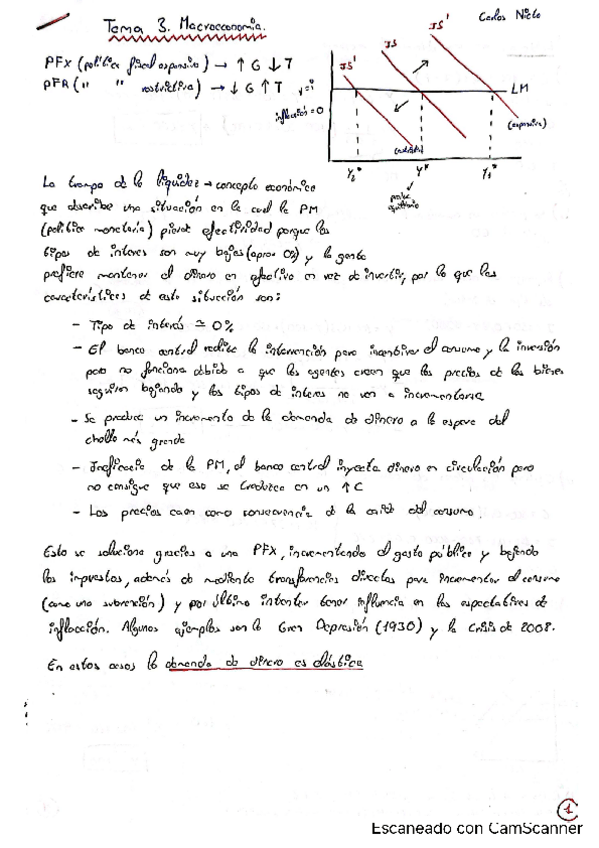 Tema 3. Macroeconomía.
Carlos Nieto
PFX (política fiscal expansiva) → ↑ G ↓ T
PFR ( " " restrictiva) → ↓ G ↑ T
IS'
IS
IS'
LM
inflación = 0
(expansiva)
Y2* Y* Y1*
La trampa de la liquidez → concepto económico
que describe una situación en la cual la PM
(política monetaria) pierde efectividad porque los
tipos de interes son muy bajos (aprox 0%) y la gente
prefiere mantener el dinero en efectivo en vez de invertir, por lo que las
características de esta situación son:
- Tipo de interés ≃ 0%
- El banco central realiza la intervención para incentivar el consumo y la inversión
pero no funciona debido a que los agentes creen que los precios de los bienes
seguiran bajando y los tipos de interes no van a incrementarse
- Se produce un incremento de la demanda de dinero a la espera del
chollo más grande
- Ineficacia de la PM, el banco central inyecta dinero en circulación pero
no consigue que eso se traduzca en un ↑ C
- Los precios caen como consecuencia de la caida del consumo.
Esto se soluciona gracias a una PFX, incrementando el gasto público y bajando
los impuestos, además de mediante transferencias directas para incrementar el consumo
(como una subvención) y por último intentar tener influencia en las expectativas de
inflacción. Algunos ejemplos son la Gran Depresión (1930) y la Crisis de 2008.
En estos casos la demanda de dinero es elástica
1
Escaneado con CamScanner